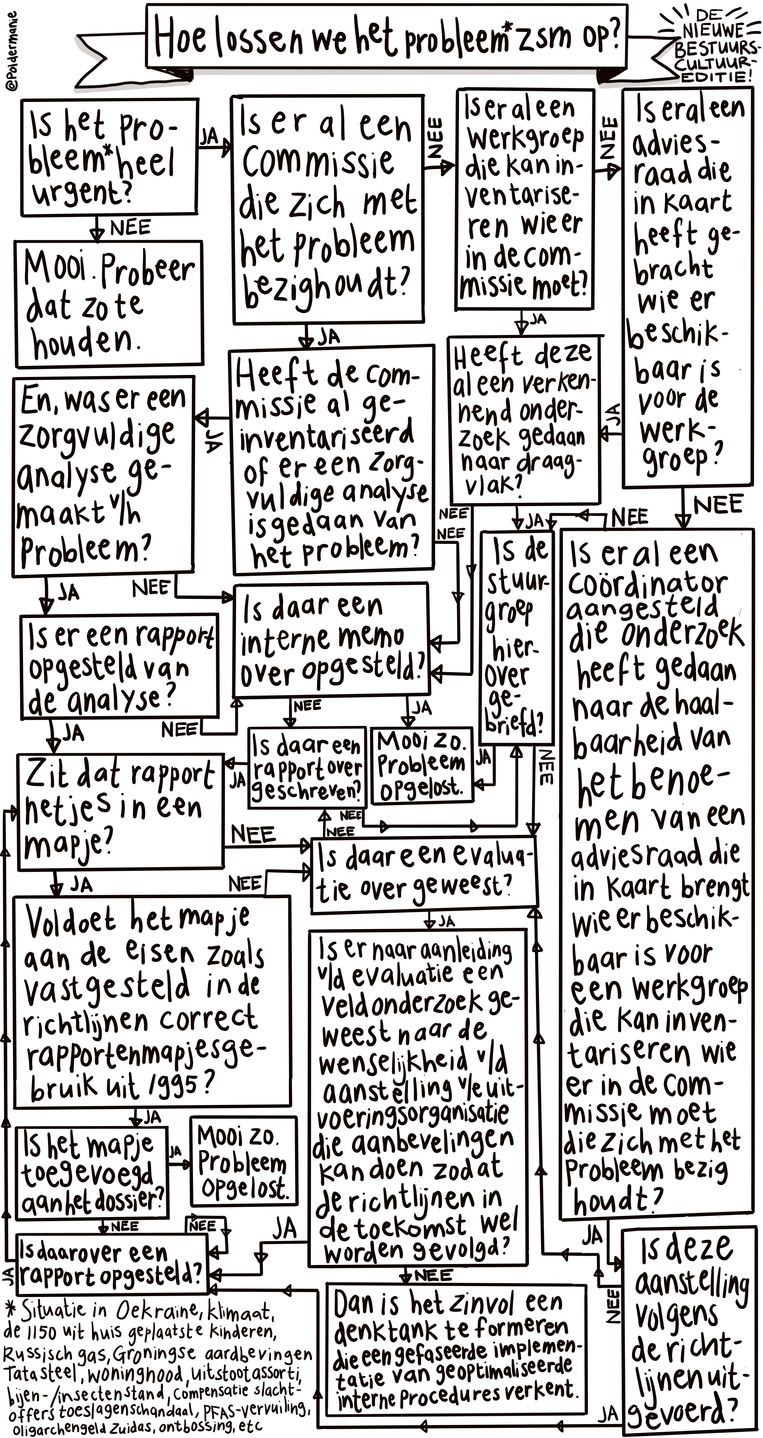 @Poldermanie
Hoe lossen we het probleem* zsm op?
DE
NIEUWE
BESTUURS-
CULTUUR-
EDITIE!
Is het pro-
bleem* heel
urgent?
JA
NEE
Mooi. Probeer
dat zo te
houden.
Is er al een
Commissie
die zich met
het probleem
bezighoudt?
NEE
JA
Is er al een
werkgroep
die kan in-
ventarise-
ren wie er
in de com-
missie moet?
NEE
JA
Is er al een
advies-
raad die
in kaart
heeft ge-
bracht
wie er
beschik-
baar is
voor de
werk-
groep?
JA
NEE
Heeft deze
al een verken-
nend onder-
zoek gedaan
naar draag-
vlak?
NEE
JA
Heeft de com-
missie al ge-
inventariseerd
of er een zorg-
vuldige analyse
is gedaan van
het probleem?
JA
NEE
En, was er een
zorgvuldige
analyse ge-
maakt v/h
Probleem?
JA
NEE
Is daar een
interne memo
over opgesteld?
NEE
JA
Is de
stuur-
groep
hier-
over
ge-
briefd?
JA
NEE
NEE
Is er al een
coördinator
aangesteld
die onderzoek
heeft gedaan
naar de haal-
baarheid van
het benoe-
men van een
adviesraad die
in kaart brengt
wie er beschik-
baar is voor
een werkgroep
die kan inven-
tariseren wie
er in de com-
missie moet
die zich met het
Probleem bezig
houdt?
JA
Is er een rapport
opgesteld van
de analyse?
JA
NEE
Is daar een
rapport over
geschreven?
JA
NEE
Mooi zo.
Probleem
opgelost.
Zit dat rapport
netjes in een
mapje?
NEE
JA
NEE
Is daar een evalua-
tie over geweest?
JA
NEE
Voldoet het mapje
aan de eisen zoals
vastgesteld in de
richtlijnen correct
rapportenmapjesge-
bruik uit 1995?
JA
Is er naar aanleiding
v/d evaluatie een
veldonderzoek ge-
weest naar de
wenselijkheid v/d
aanstelling v/e uit-
voeringsorganisatie
die aanbevelingen
kan doen zodat
de richtlijnen in
de toekomst wel
worden gevolgd?
JA
NEE
Is het mapje
toegevoegd
aan het dossier?
JA
NEE
Mooi zo.
Probleem
opgelost.
NEE
Is daarover een
rapport opgesteld?
JA
Dan is het zinvol een
denktank te formeren
die een gefaseerde implemen-
tatie van geoptimaliseerde
interne procedures verkent.
Is deze
aanstelling
volgens
de richt-
lijnen uit-
gevoerd?
NEE
JA
* Situatie in Oekraïne, klimaat,
de 1150 uit huis geplaatste kinderen,
Russisch gas, Groningse aardbevingen
Tata steel, woningnood, uitstoot assorti,
bijen-/insectenstand, compensatie slacht-
offers toeslagenschandaal, PFAS-vervuiling,
Oligarchengeld Zuidas, ontbossing, etc